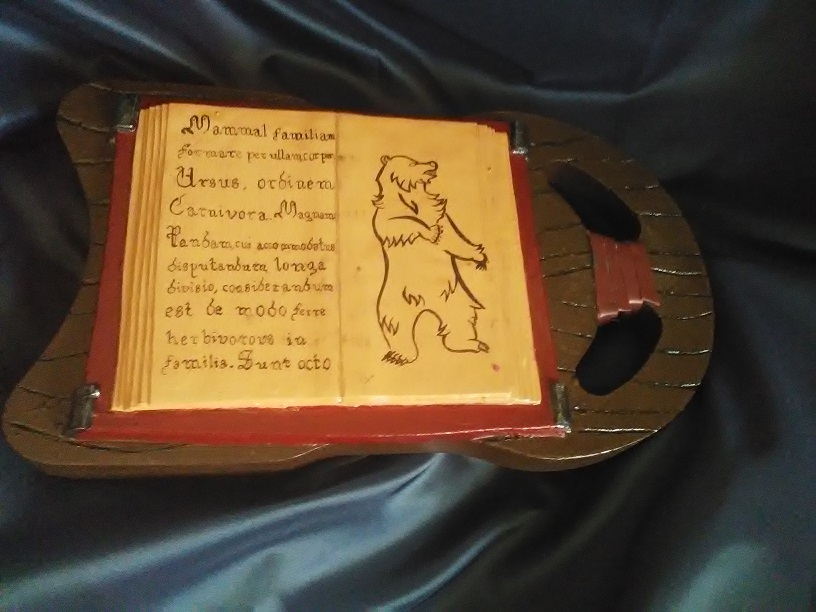 Mammal familiam
formare per ullamcorper
Ursus, ordinem
Carnivora Magnam
Pandam, cui accommodatus
disputandum longa
divisio, considerandum
est de modo ferre
herbivorous in
familia. Sunt octo